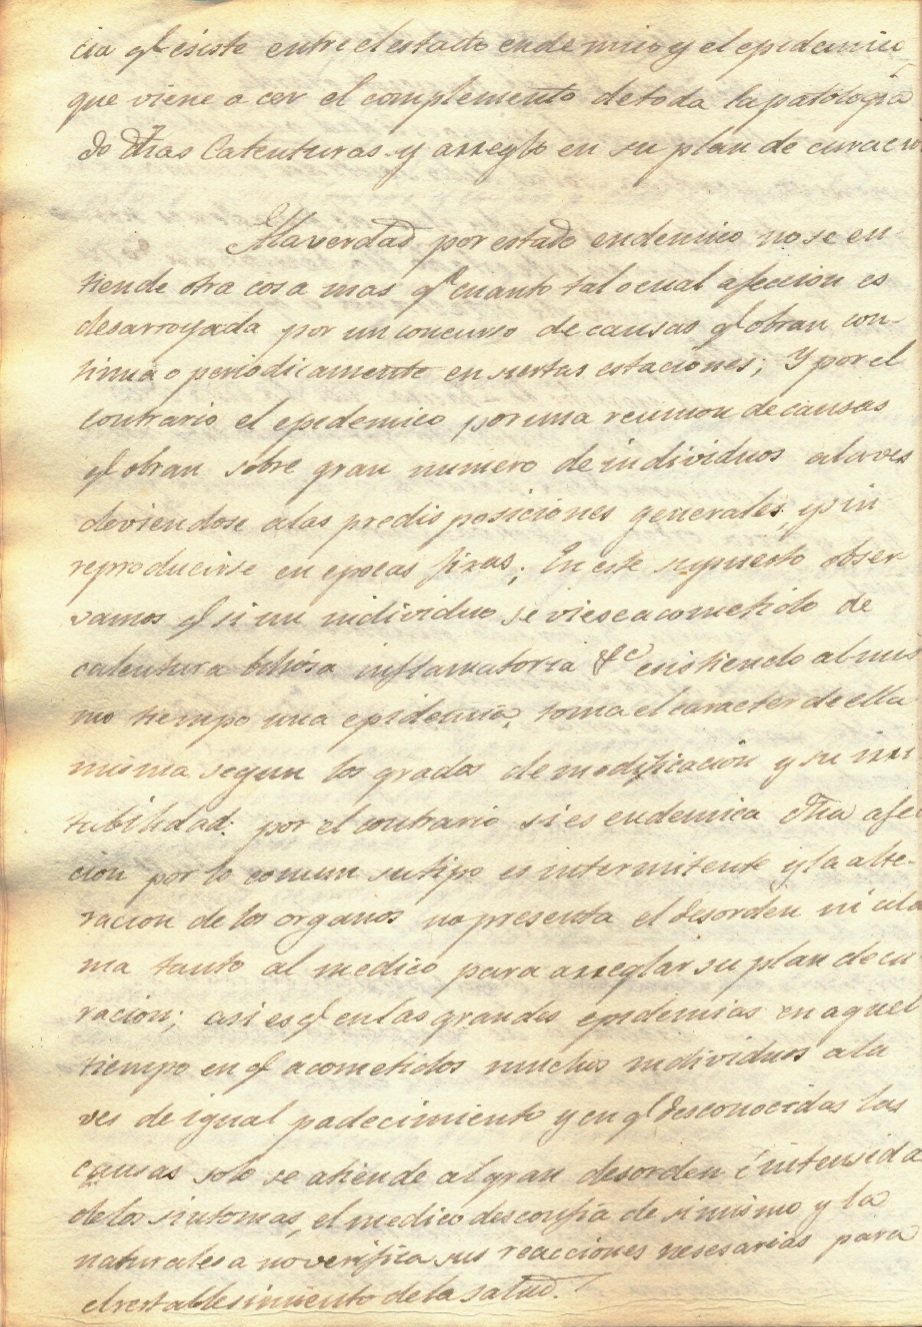 cia qᵉ ésiste entre el estado endemico y el epidemico
que viene a cer el complemento de toda la patologia
do dhas Calenturas y arreglo en su plan de curacio
A la verdad por estado endemico no se en-
tiende otra cosa mas qᵉ cuanto tal o cual afeccion es
desarroyada por un concurso de causas qᵉ obran con-
tinua o periodicamente en siertas estaciones; Y por el
contrario el epidemico por una reunion de causas
qᵉ obran sobre gran numero de individuos ala ves
deviendose a las predisposiciones generales y sin
reproducirse en epocas fixas; En este supuesto obser-
vamos qᵉ si un individuo se viese acometido de
calentura biliosa inflamatoria &ᶜ existiendo al mis
mo tiempo una epidemia, toma el caracter de ella
misma segun los grados de modificacion y su irri
tabilidad: por el contrario si es endemica dha afec
cion por lo comun su tipo es intermitente y la alte-
racion de los organos no presenta el desorden ni ala
ma tanto al medico para arreglar su plan de cu
racion; asi es qᵉ en las grandes epidemias en aquel
tiempo en qᵉ acometidos muchos individuos a la
ves de igual padecimiento y en qᵉ desconocidas las
causas solo se atiende al gran desorden é intensida
de los sintomas, el medico desconfia de si mismo y la
naturalesa no verifica sus reacciones nesesarias para
el restablesimiento de la salud.